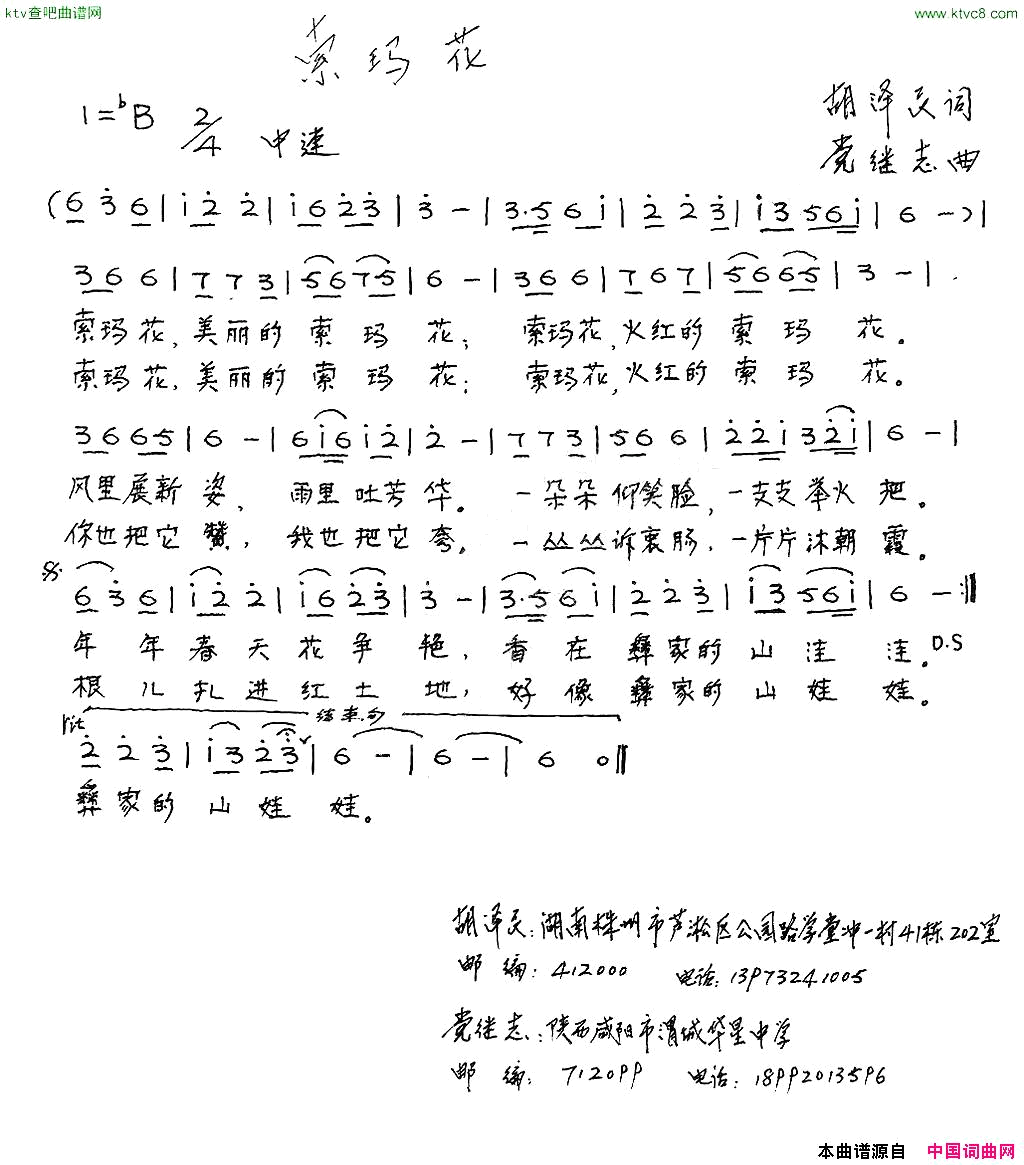 ktv查吧曲谱网
www.ktvc8.com
索玛花
1=♭B 2/4 中速
胡泽民词
党继志曲
(6 3̇ 6 | i 2̇ 2̇ | i 6 2̇ 3̇ | 3̇ - | 3·5 6 i | 2̇ 2̇ 3̇ | i 3 5 6 i | 6 - ) |
3 6 6 | 7 7 3 | 5 6 7 5 | 6 - | 3 6 6 | 7 6 7 | 5 6 6 5 | 3 - |
索玛花,美丽的索玛花; 索玛花,火红的索玛花。
索玛花,美丽的索玛花; 索玛花,火红的索玛花。
3 6 6 5 | 6 - | 6 i 6 i 2̇ | 2̇ - | 7 7 3 | 5 6 6 | 2̇ 2̇ i 3 2̇ i | 6 - |
风里展新姿, 雨里吐芳华。 一朵朵仰笑脸,一支支举火把。
你也把它赞, 我也把它夸。 一丛丛诉衷肠,一片片沐朝霞。
6 3̇ 6 | i 2̇ 2̇ | i 6 2̇ 3̇ | 3̇ - | 3·5 6 i | 2̇ 2̇ 3̇ | i 3 5 6 i | 6 - :‖
年年春天花争艳, 香在彝家的山洼洼。 D.S
根儿扎进红土地, 好像彝家的山娃娃。
rit 结束句
2̇ 2̇ 3̇ | i 3 2̇ 3̇ | 6 - | 6 - | 6 0 ‖
彝家的山娃娃。
胡泽民:湖南株州市芦淞区公园路学堂冲一村41栋202室
邮编:412000 电话:13973241005
党继志:陕西咸阳市渭城华星中学
邮编:712099 电话:18992013596
本曲谱源自 中国词曲网